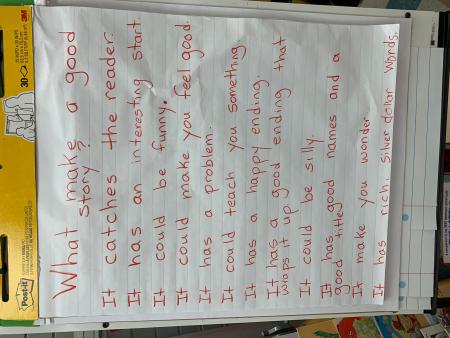 What make a good
story?
It catches the reader.
It has an interesting start.
It could be funny.
It could make you feel good.
It has a problem.
It could teach you something.
It has a happy ending.
It has a good ending that
wraps it up
It could be silly.
It has good names and a
good title
It make you wonder
It has rich, silver dollar words.
Post-it
3M
30